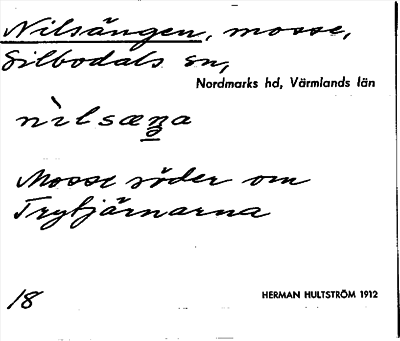 Nilsängen, mosse,
Silbodals sn,
Nordmarks hd, Värmlands län
Mosse söder om
Trytjärnarna
18
HERMAN HULTSTRÖM 1912